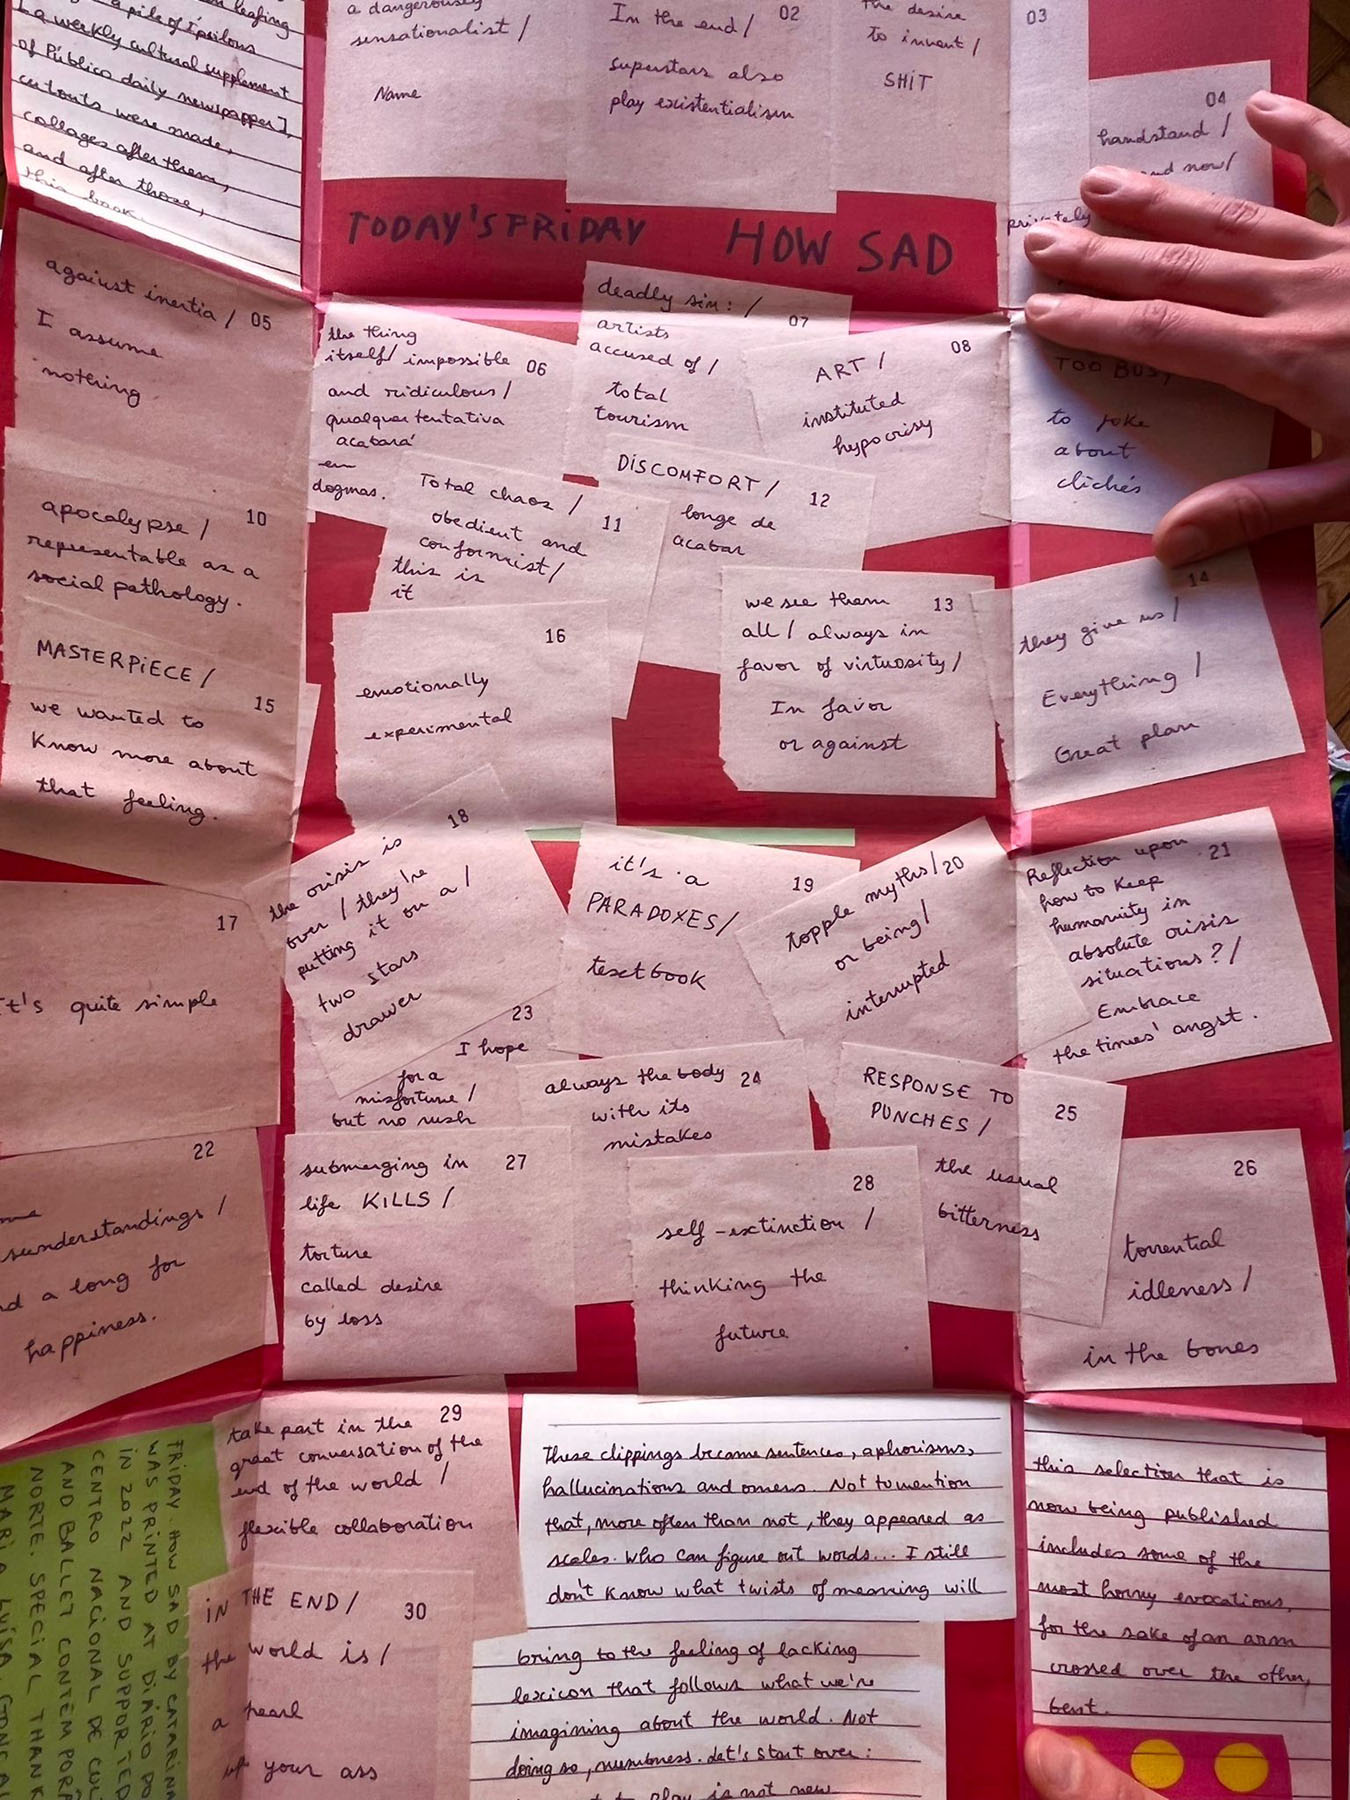 a pile of Ípsilons
[a weekly cultural supplement
of Público daily newspapper],
cutouts were made,
collages after them,
and after those,
this book.
a dangerously
sensationalist /
Name
02
In the end /
superstars also
play existentialism
the desire
to invent /
SHIT
03
privately
04
handstand /
now /
TODAY'S FRIDAY HOW SAD
against inertia / 05
I assume
nothing
the thing
itself / impossible 06
and ridiculous /
qualquer tentativa
acabará
em
dogmas.
deadly sin: /
07
artists
accused of /
total
tourism
08
ART /
instituted
hypocrisy
TOO BUSY
to joke
about
clichés
10
apocalypse /
representable as a
social pathology.
Total chaos /
11
obedient and
conformist /
this is
it
DISCOMFORT /
12
longe de
acabar
we see them 13
all / always in
favor of virtuosity /
In favor
or against
14
they give us /
Everything /
Great plan
MASTERPIECE /
15
we wanted to
know more about
that feeling.
16
emotionally
experimental
17
it's quite simple
18
the crisis is
over / they're
putting it on a /
two stars
drawer
it's a
19
PARADOXES /
textbook
topple myths / 20
or being /
interrupted
Reflection upon 21
how to keep
humanity in
absolute crisis
situations? /
Embrace
the times' angst.
22
sunderstandings /
a long for
happiness.
23
I hope
for a
misfortune /
but no rush
always the body 24
with its
mistakes
RESPONSE TO
PUNCHES /
25
the usual
bitterness
26
torrential
idleness /
in the bones
submerging in 27
life KILLS /
torture
called desire
by loss
28
self-extinction /
thinking the
future
take part in the 29
great conversation of the
end of the world /
flexible collaboration
IN THE END /
30
the world is /
a pearl
up your ass
These clippings became sentences, aphorisms,
hallucinations and omens. Not to mention
that, more often than not, they appeared as
scales. Who can figure out words... I still
don't know what twists of meaning will
bring to the feeling of lacking
lexicon that follows what we're
imagining about the world. Not
doing so, numbness. Let's start over:
to play is not new
this selection that is
now being published
includes some of the
most horny evocations,
for the sake of an arm
crossed over the other,
bent.
FRIDAY. HOW SAD BY CATARINA
WAS PRINTED AT DIÁRIO DO
IN 2022 AND SUPPORTED
CENTRO NACIONAL DE CUL
AND BALLET CONTEMPORÂ
NORTE. SPECIAL THANK
MARIA LUÍSA GONÇAL